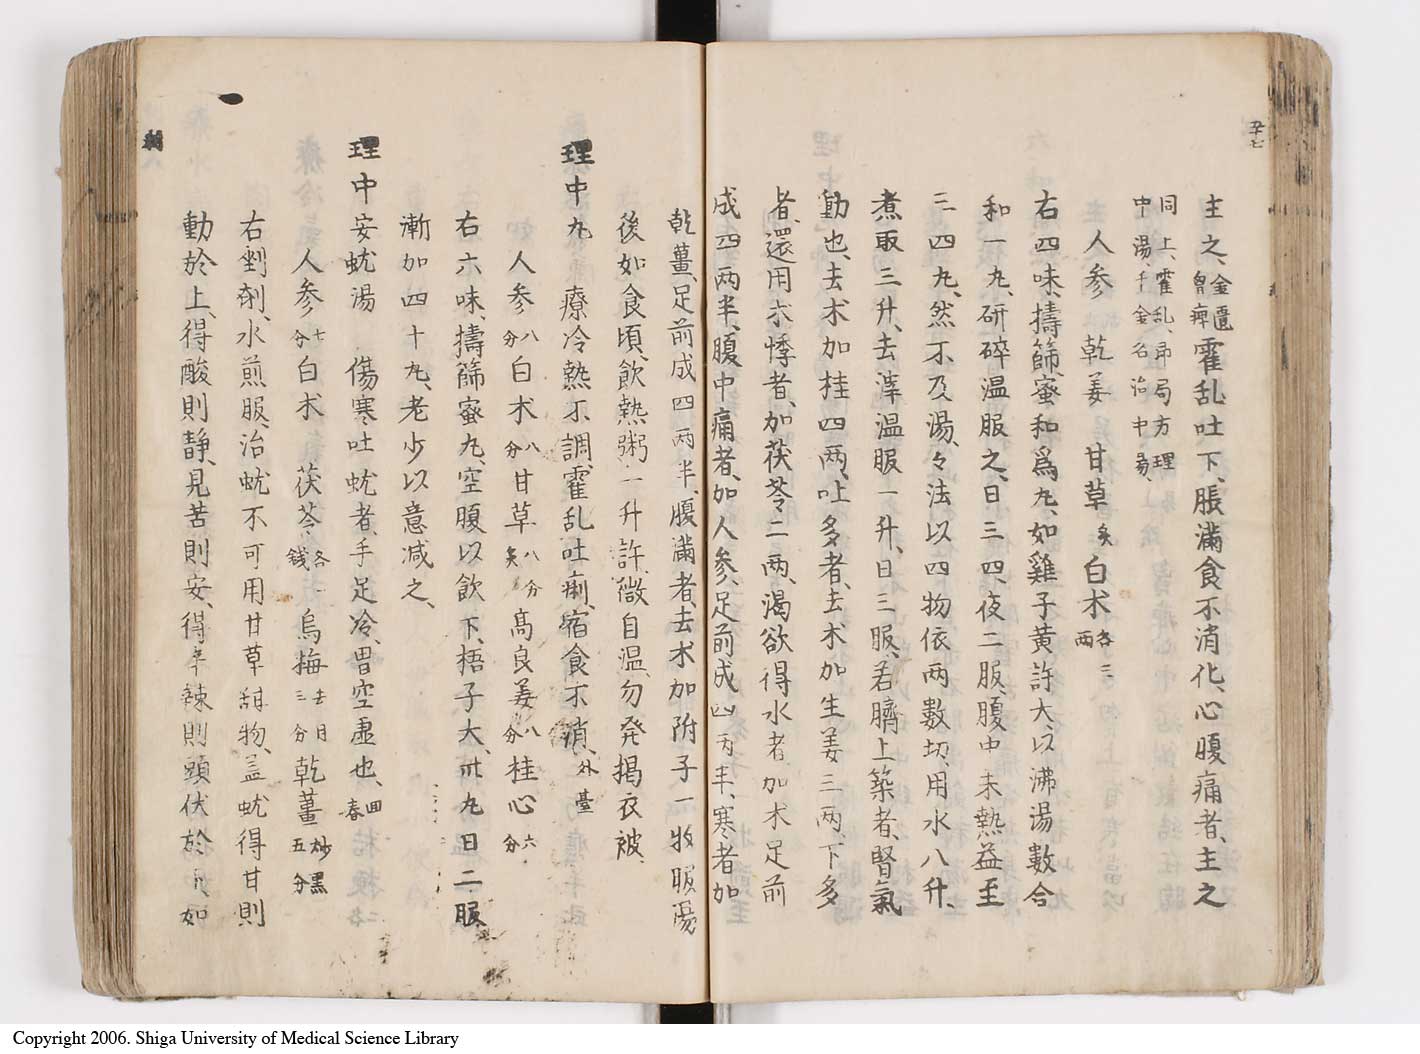 主之、金匱胷痺霍乱吐下、脹滿食不消化、心腹痛者、主之
同上、霍乱、局方理
中湯、千金名治中
人参 乾姜 甘草炙 白朮各三両
右四味、擣篩、蜜和為丸、如雞子黄許大、以沸湯数合
和一丸、研碎温服之、日三四、夜二服、腹中未熱益至
三四丸、然不及湯、々法以四物依两数切、用水八升、
煮取三升、去滓温服一升、日三服、若臍上築者、腎氣
動也、去朮加桂四两、吐多者、去朮加生姜三两、下多
者、還用朮悸者、加茯苓二两、渇欲得水者加朮足前
成四两半、腹中痛者、加人参、足前成四两半、寒者加
乾薑、足前成四两半、腹滿者、去朮加附子一枚服湯
後如食頃、飲熱粥一升許、微自温、勿発揭衣被、
理中丸 療冷熱不調、霍乱吐痢、宿食不消、外臺
人参八分 白朮八分 甘草八分炙 高良姜八分 桂心六分
右六味、擣篩蜜丸、空腹以飲下、梧子大、卅丸日二服、
漸加四十丸、老少以意减之、
理中安蚘湯 傷寒吐蚘者、手足冷、胃空虚也、回春
人参七分 白朮 茯苓各一銭 烏梅三分 乾薑炒黒五分
右剉剤、水煎服、治蚘不可用甘草甜物、盖蚘得甘則
動於上、得酸則静、見苦則安、得辛辣則頭伏於下、如